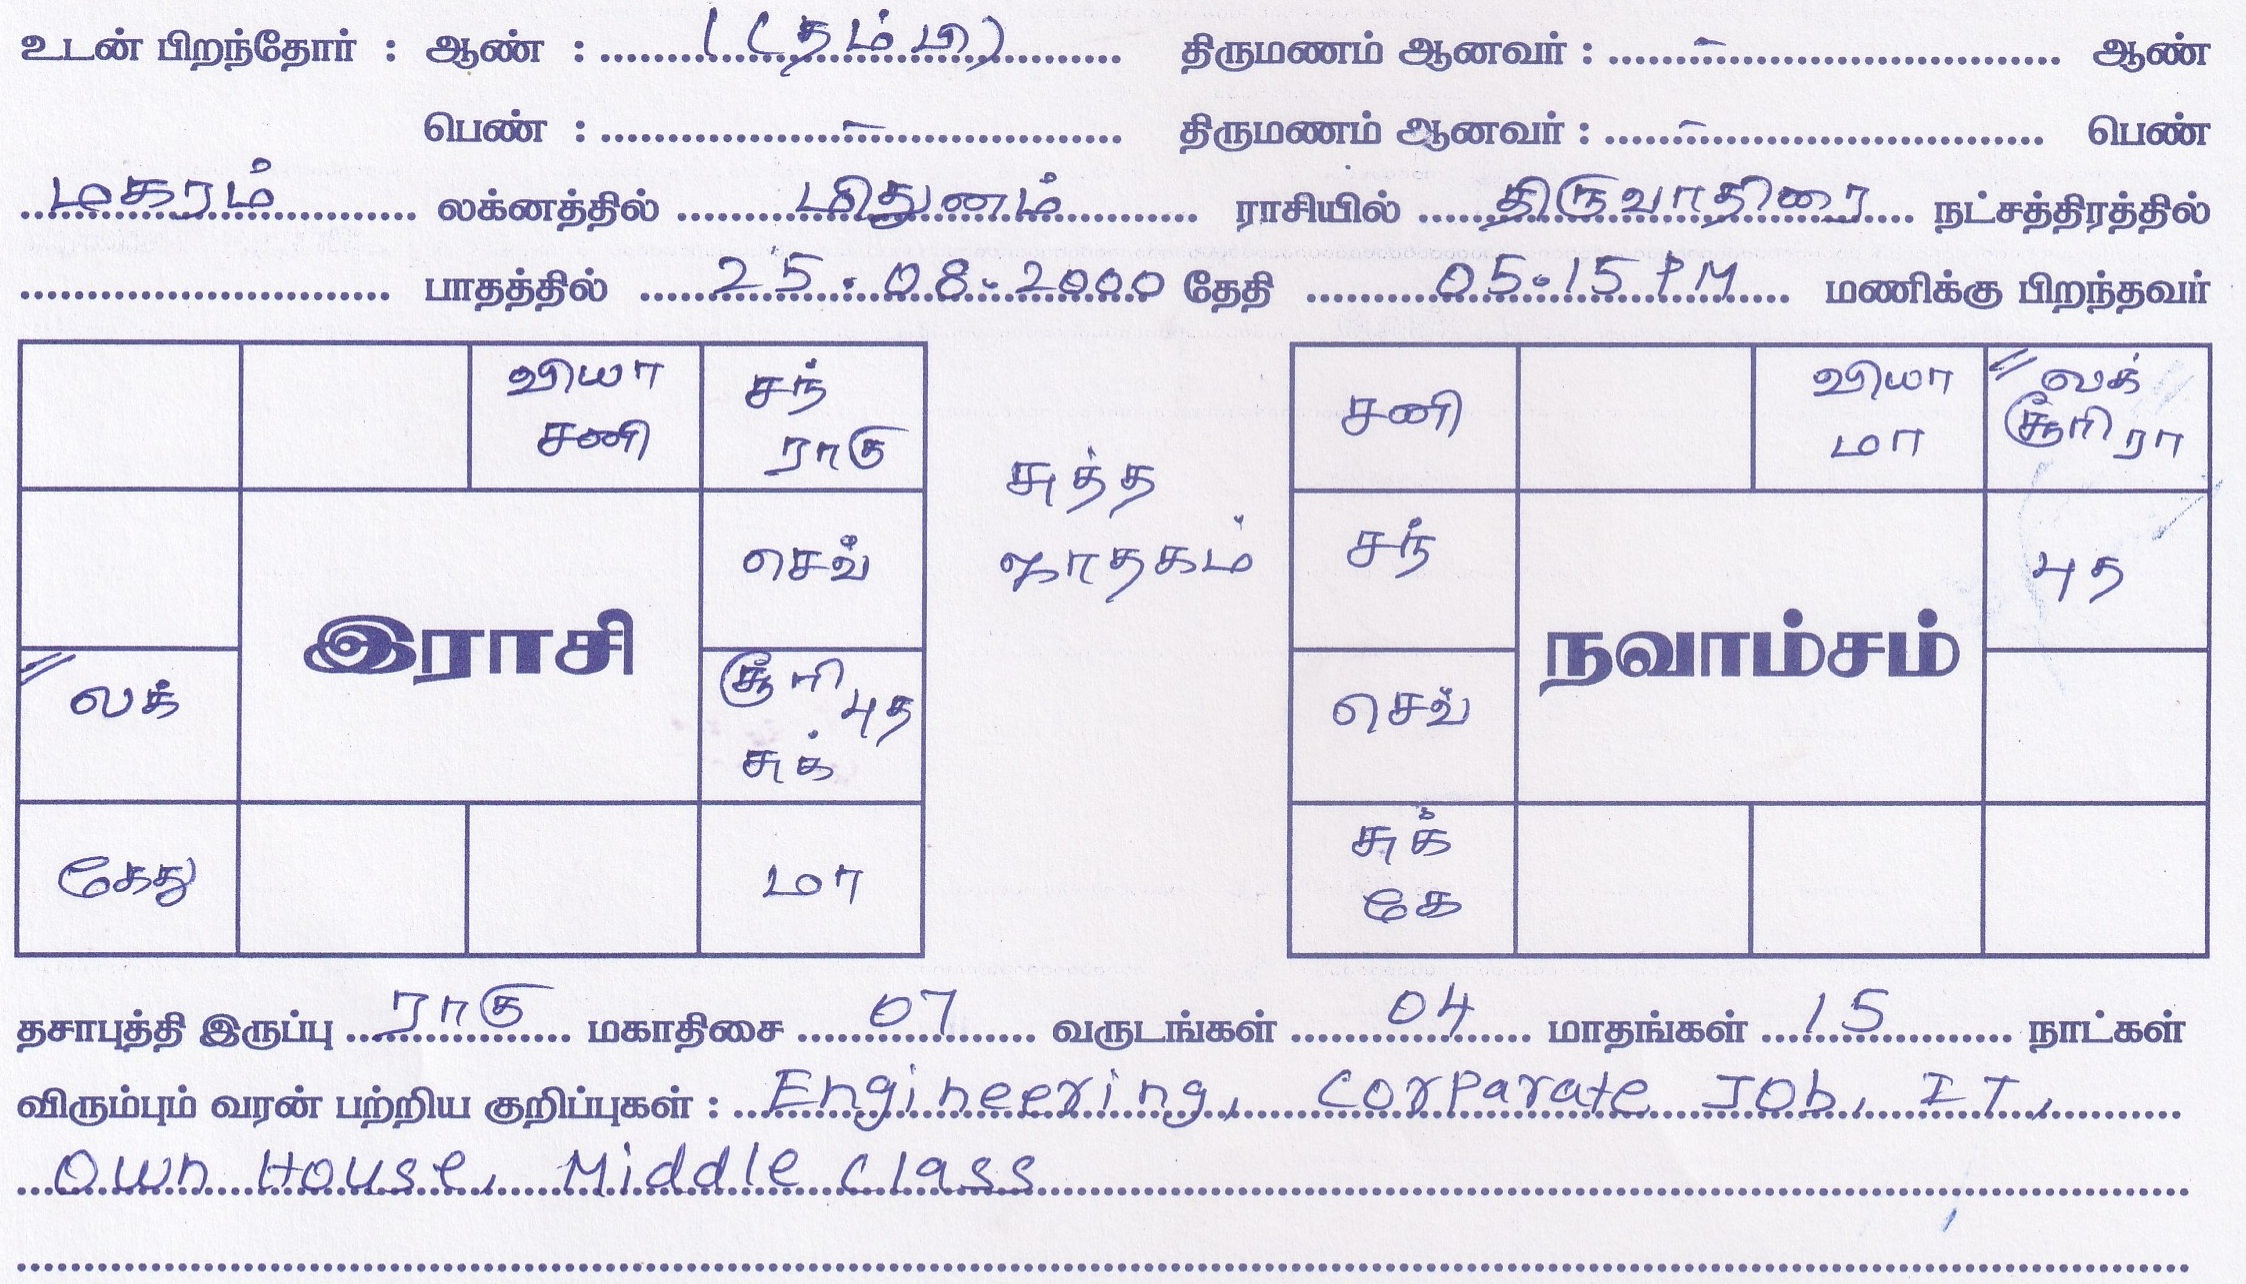 உடன் பிறந்தோர் : ஆண் : 1 (தம்பி) திருமணம் ஆனவர் : – ஆண்
பெண் : – திருமணம் ஆனவர் : – பெண்
மகரம் லக்னத்தில் மிதுனம் ராசியில் திருவாதிரை நட்சத்திரத்தில்
பாதத்தில் 25.08.2000 தேதி 05.15 PM மணிக்கு பிறந்தவர்
வியா
சனி
சந்
ராகு
செவ்
இராசி
லக்
சூரி புத
சுக்
கேது
மா
சுத்த
ஜாதகம்
சனி
வியா
மா
லக்
சூரி ரா
சந்
புத
நவாம்சம்
செவ்
சுக்
கே
தசாபுத்தி இருப்பு ராகு மகாதிசை 07 வருடங்கள் 04 மாதங்கள் 15 நாட்கள்
விரும்பும் வரன் பற்றிய குறிப்புகள் : Engineering, Corparate Job, IT,
Own House, Middle Class